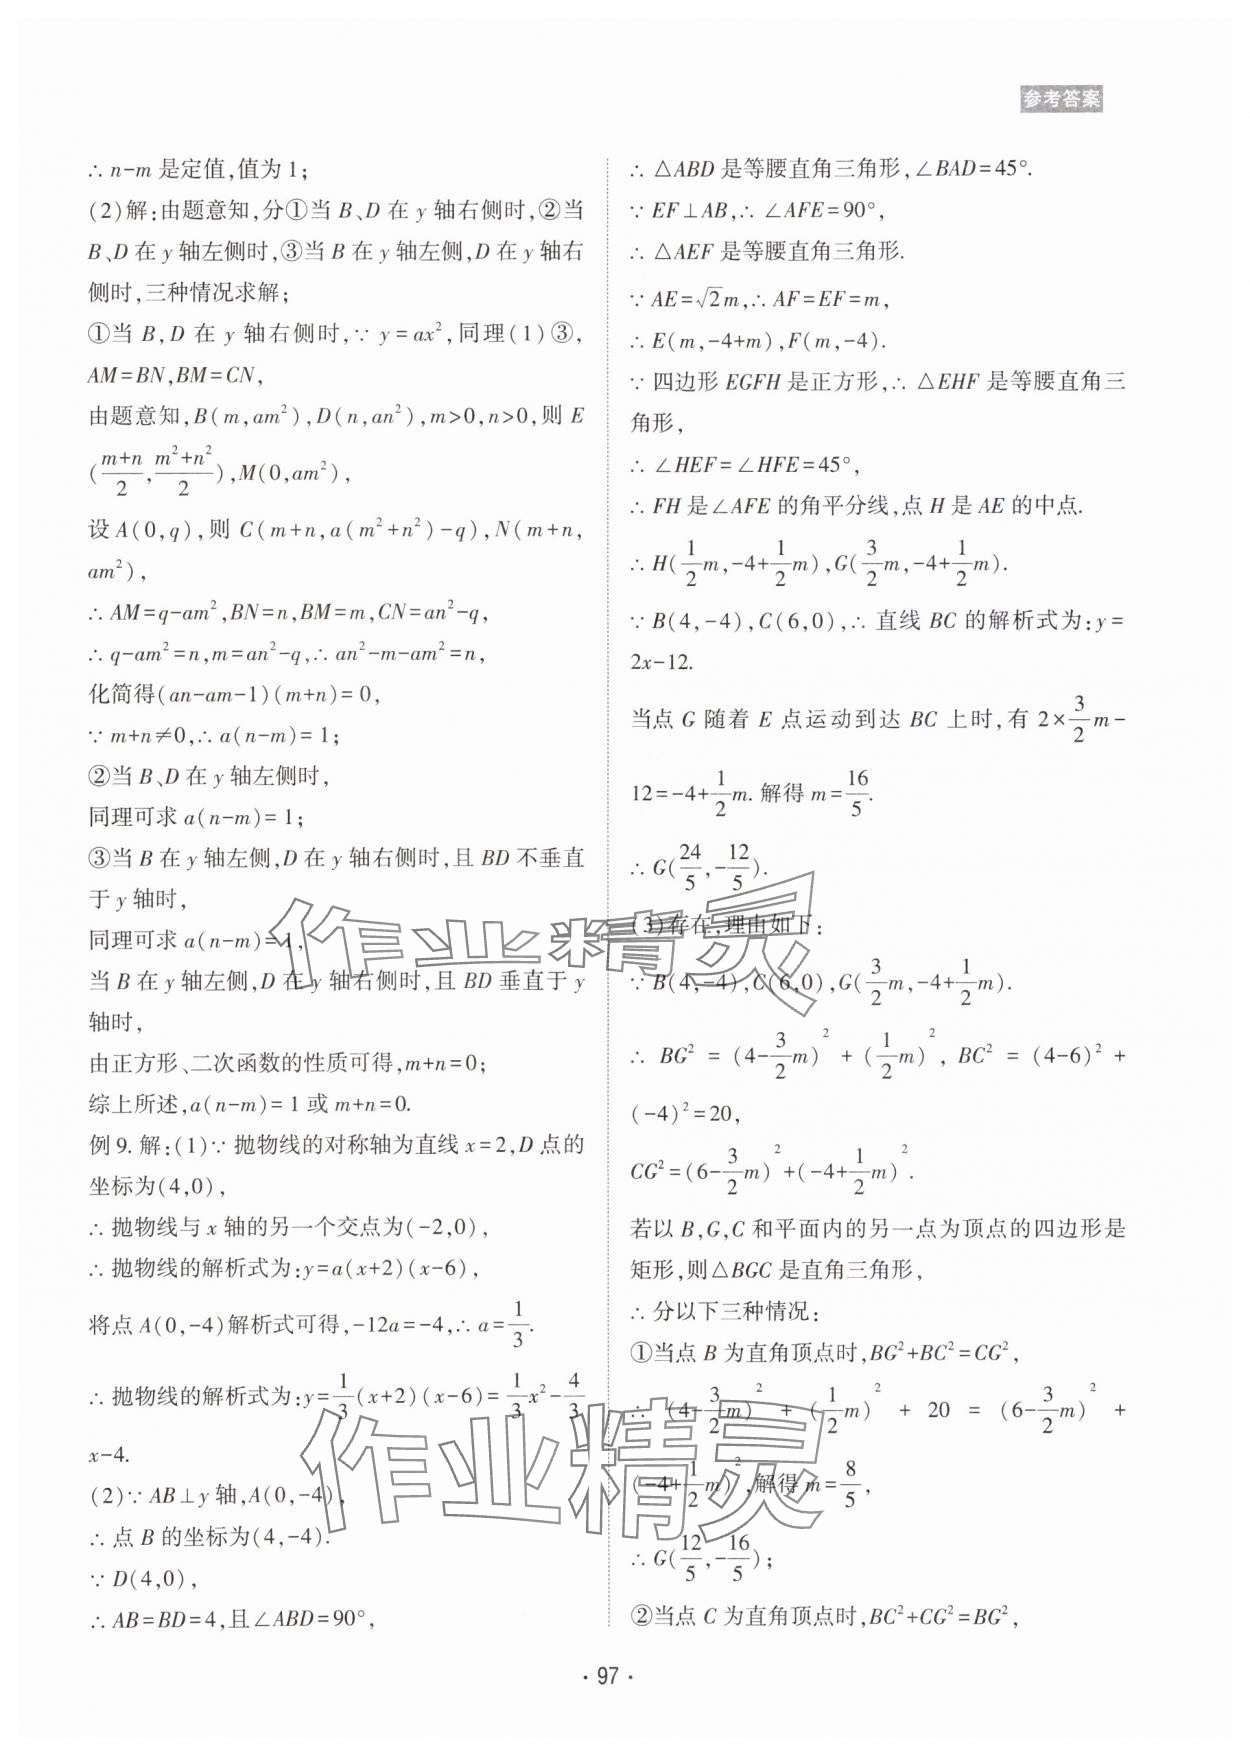 参考答案
∴ n-m 是定值,值为 1;
(2)解:由题意知,分①当 B、D 在 y 轴右侧时,②当
B、D 在 y 轴左侧时,③当 B 在 y 轴左侧,D 在 y 轴右
侧时,三种情况求解;
①当 B,D 在 y 轴右侧时,∵ y=ax²,同理(1)③,
AM=BN,BM=CN,
由题意知,B(m,am²),D(n,an²),m>0,n>0,则 E
(\frac{m+n}{2},\frac{m²+n²}{2}),M(0,am²),
设 A(0,q),则 C(m+n,a(m²+n²)-q),N(m+n,
am²),
∴ AM=q-am²,BN=n,BM=m,CN=an²-q,
∴ q-am²=n,m=an²-q,∴ an²-m-am²=n,
化简得(an-am-1)(m+n)=0,
∵ m+n≠0,∴ a(n-m)=1;
②当 B、D 在 y 轴左侧时,
同理可求 a(n-m)=1;
③当 B 在 y 轴左侧,D 在 y 轴右侧时,且 BD 不垂直
于 y 轴时,
同理可求 a(n-m)=1,
当 B 在 y 轴左侧,D 在 y 轴右侧时,且 BD 垂直于 y
轴时,
由正方形、二次函数的性质可得,m+n=0;
综上所述,a(n-m)=1 或 m+n=0.
例 9. 解:(1)∵ 抛物线的对称轴为直线 x=2,D 点的
坐标为(4,0),
∴ 抛物线与 x 轴的另一个交点为(-2,0),
∴ 抛物线的解析式为:y=a(x+2)(x-6),
将点 A(0,-4)解析式可得,-12a=-4,∴ a=\frac{1}{3}.
∴ 抛物线的解析式为:y=\frac{1}{3}(x+2)(x-6)=\frac{1}{3}x²-\frac{4}{3}
x-4.
(2)∵ AB⊥y 轴,A(0,-4),
∴ 点 B 的坐标为(4,-4).
∵ D(4,0),
∴ AB=BD=4,且∠ABD=90°,
∴ △ABD 是等腰直角三角形,∠BAD=45°.
∵ EF⊥AB,∴ ∠AFE=90°,
∴ △AEF 是等腰直角三角形.
∵ AE=√2m,∴ AF=EF=m,
∴ E(m,-4+m),F(m,-4).
∵ 四边形 EGFH 是正方形,∴ △EHF 是等腰直角三
角形,
∴ ∠HEF=∠HFE=45°,
∴ FH 是∠AFE 的角平分线,点 H 是 AE 的中点.
∴ H(\frac{1}{2}m,-4+\frac{1}{2}m),G(\frac{3}{2}m,-4+\frac{1}{2}m).
∵ B(4,-4),C(6,0),∴ 直线 BC 的解析式为:y=
2x-12.
当点 G 随着 E 点运动到达 BC 上时,有 2×\frac{3}{2}m-
12=-4+\frac{1}{2}m. 解得 m=\frac{16}{5}.
∴ G(\frac{24}{5},-\frac{12}{5}).
(3)存在,理由如下:
∵ B(4,-4),C(6,0),G(\frac{3}{2}m,-4+\frac{1}{2}m).
∴ BG²=(4-\frac{3}{2}m)²+(\frac{1}{2}m)², BC²=(4-6)²+
(-4)²=20,
CG²=(6-\frac{3}{2}m)²+(-4+\frac{1}{2}m)².
若以 B,G,C 和平面内的另一点为顶点的四边形是
矩形,则△BGC 是直角三角形,
∴ 分以下三种情况:
①当点 B 为直角顶点时,BG²+BC²=CG²,
∴ (4-\frac{3}{2}m)²+(\frac{1}{2}m)²+20=(6-\frac{3}{2}m)²+
(-4+\frac{1}{2}m)²,解得 m=\frac{8}{5},
∴ G(\frac{12}{5},-\frac{16}{5});
②当点 C 为直角顶点时,BC²+CG²=BG²,
· 97 ·
作业精灵
作业精灵